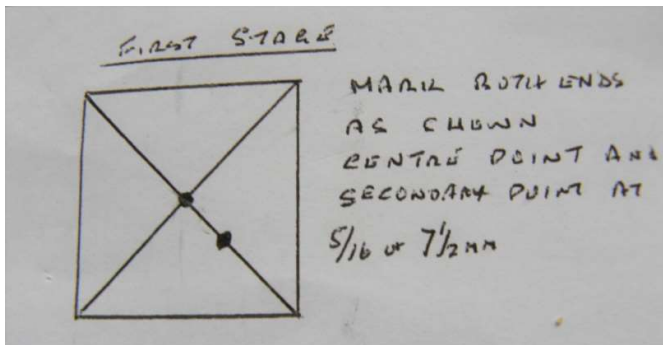 FIRST STAGE
MARK BOTH ENDS
AS SHOWN
CENTRE POINT AND
SECONDARY POINT AT
5/16 or 7 1/2 MM